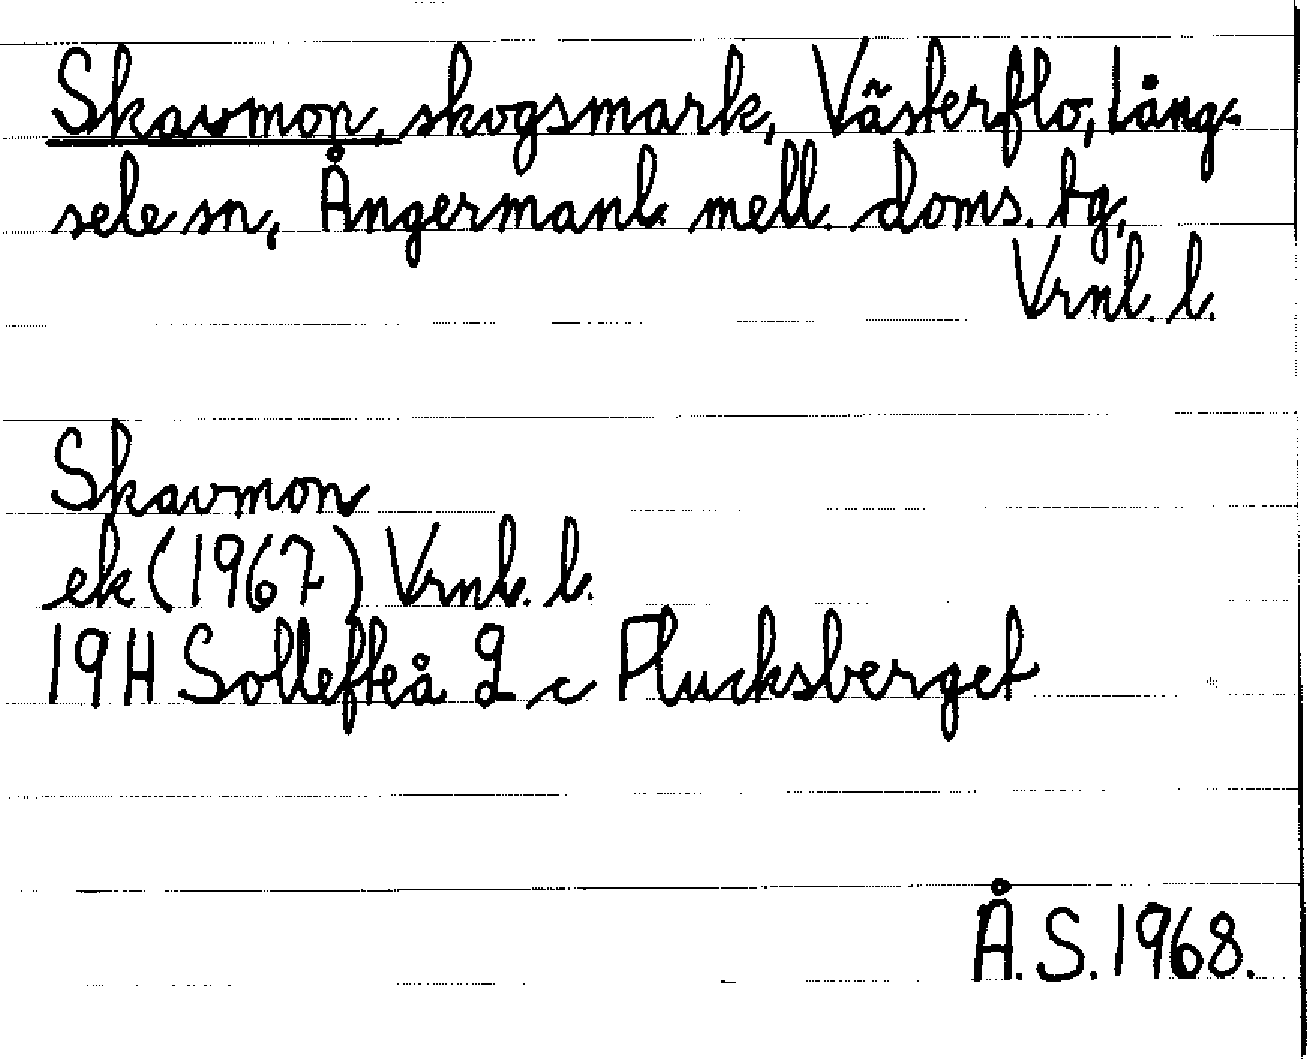 Skavmon, skogsmark, Västerflo, Lång-
sele sn, Ångermanl. mell. doms. tg,
Vrnl. l.
Skavmon
ek (1967) Vrnl. l.
19H Sollefteå 2 c Plucksberget
Å.S. 1968.